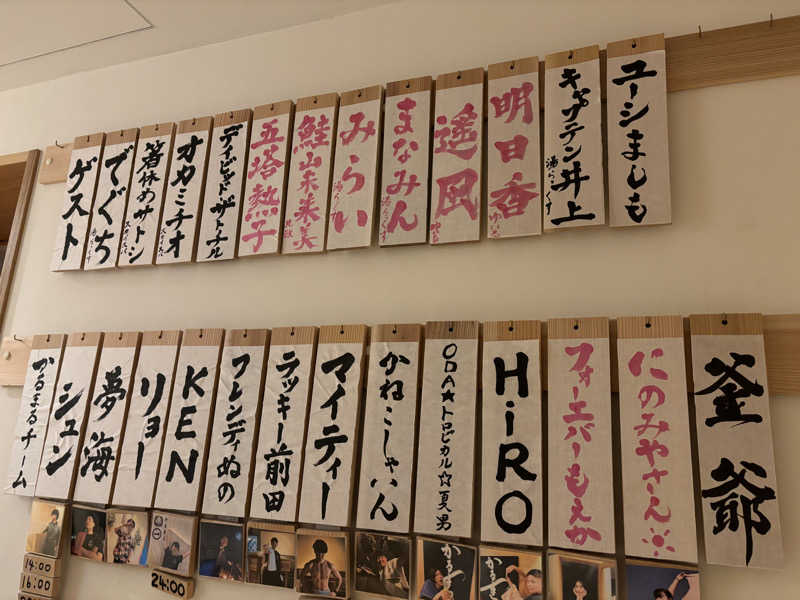 ユーシましも
キャサテン井上
湯らっくす
明日香
ゆいる
遙凪
ゆいる
まなみん
湯らっくす
みらい
湯らっくす
鮭山未菜美
五塔熱子
デイビッド・ザ・トチル
オカミチオ
スカイスパ
箸休めサトシ
スカイスパ
でぐち
湯らっくす
ゲスト
釜爺
にのみやさん
フォーエバーもえか
HiRO
ODA★トロピカル☆夏男
かねこしゃいん
マイティー
ラッキー前田
フレンディぬの
KEN
リョー
夢海
シュン
かるまるチーム
14:00
16:00
24:00
かるまる
かるまる